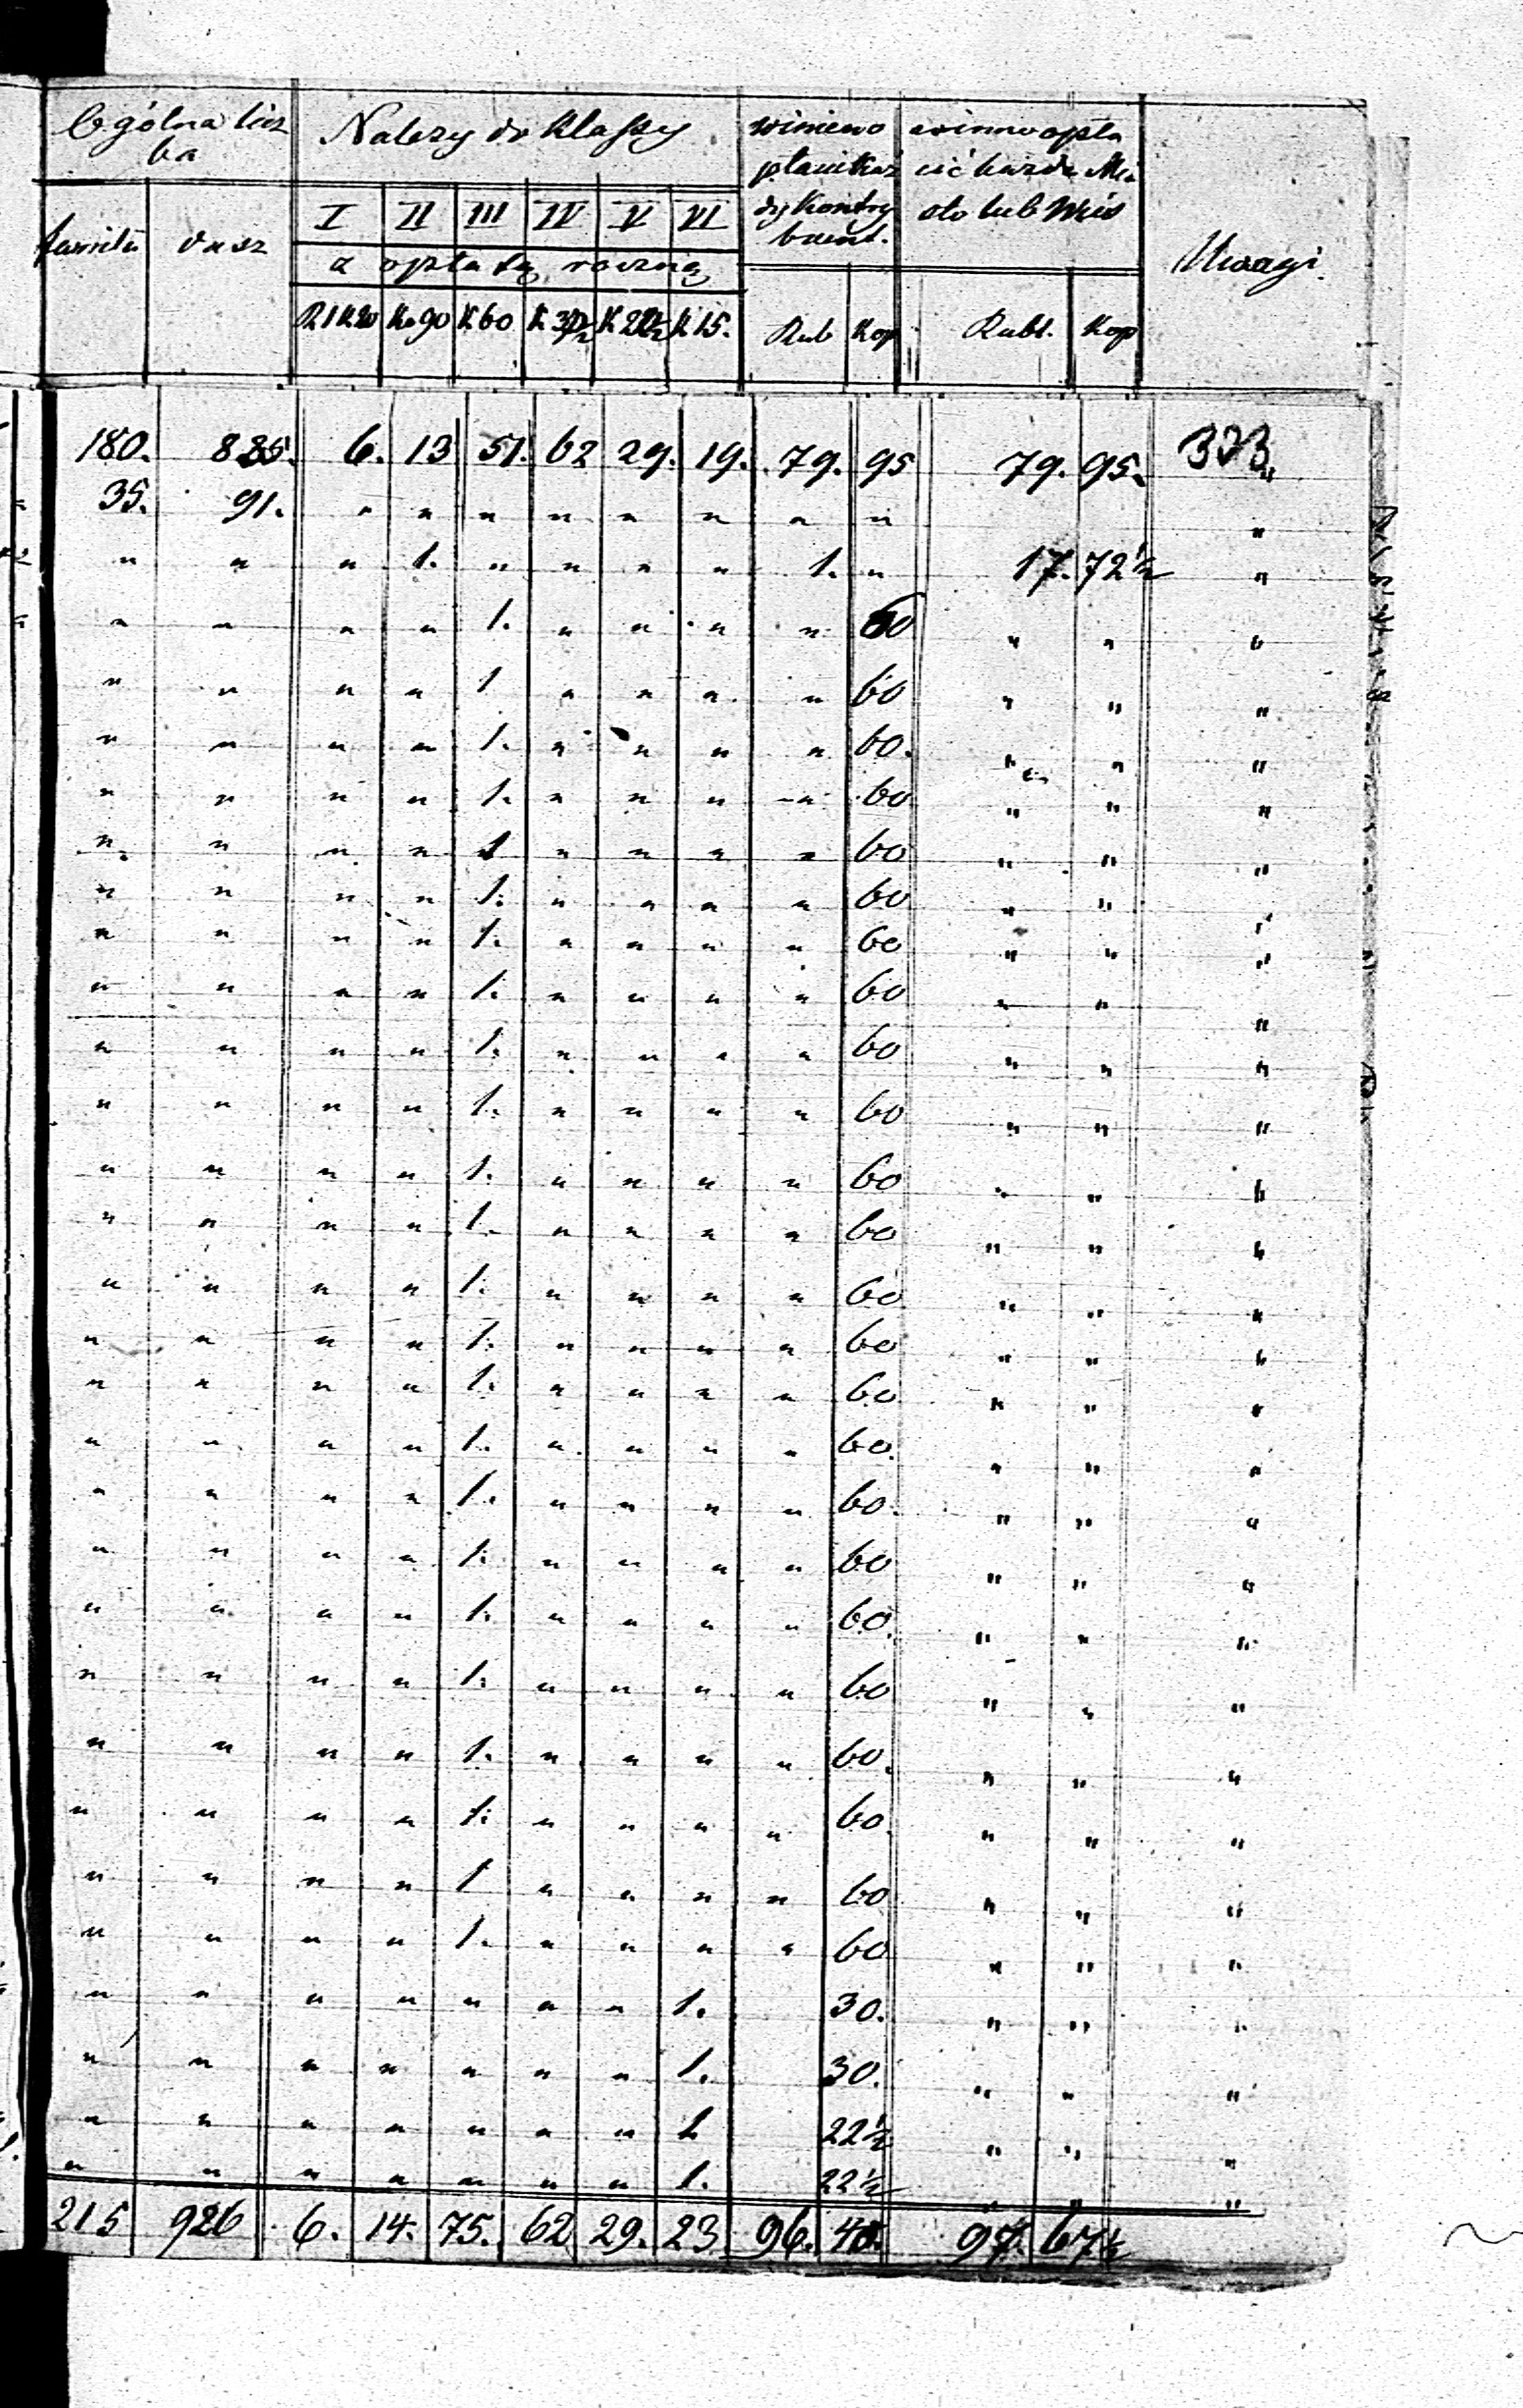 Ogólna licz
ba
Należy do Klassy
winien
płacić każ
dy Kontry
buent.
winno opła
cić każde Mia
sto lub Wieś
Uwagi.
familii dusz
I II III IV V VI
z opłatą roczną
R1 K20 K. 90 K 60 K 37½ K 22½ K 15.
Rub Kop Rubl. Kop
180. 835. 6. 13 51. 62 29. 19. 79. 95 79. 95. 323 "
35. 91. " " " " " " " " "
" " " 1. " " " " 1. " 17. 72½ "
" " " " 1. " " " " 60 " " "
" " " " 1 " " " " 60 " " "
" " " " 1. " " " " 60. " " "
" " " " 1. " " " " 60 " " "
" " " " 1 " " " " 60 " " "
" " " " 1. " " " " 60 " " "
" " " " 1. " " " " 60 " " "
" " " " 1. " " " " 60 " " "
" " " " 1. " " " " 60 " " "
" " " " 1. " " " " 60 " " "
" " " " 1. " " " " 60 " " "
" " " " 1. " " " " 60 " " "
" " " " 1. " " " " 60 " " "
" " " " 1. " " " " 60 " " "
" " " " 1. " " " " 60 " " "
" " " " 1. " " " " 60. " " "
" " " " 1. " " " " 60. " " "
" " " " 1. " " " " 60 " " "
" " " " 1. " " " " 60. " " "
" " " " 1. " " " " 60 " " "
" " " " 1. " " " " 60. " " "
" " " " 1. " " " " 60. " " "
" " " " 1 " " " " 60 " " "
" " " " 1. " " " " 60 " " "
" " " " " " " 1. 30. " " "
" " " " " " " 1. 30. " " "
" " " " " " " 1. 22½ " " "
" " " " " " " 1. 22½ " " "
215 926 6. 14. 75. 62 29. 23 96. 40. 97. 67½